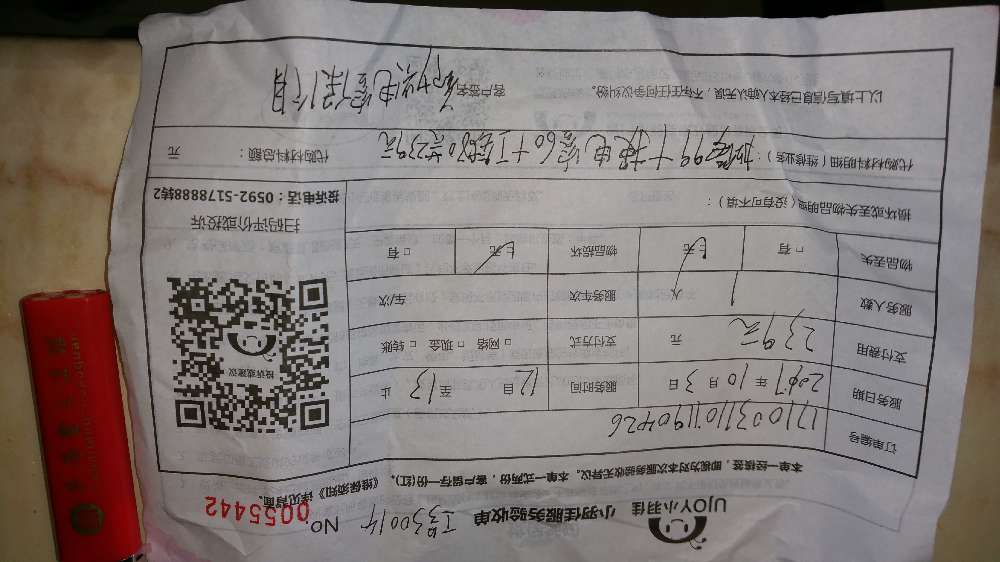 UJOY小羽佳 小羽佳服务验收单 NO 0055442
本单一经核签，即视为对本次服务验收无异议。本单一式两份，客户留存一份(红)。《维保须知》详见背面。
订单编号
服务日期 2017 年 10 月 3 日 服务时间 12 日 至 13 止
支付费用 239元 元 支付方式 □ 网络 □ 现金 □ 转账
服务人数 1 人 服务车次 车/次
物品丢失 □ 有 无 物品损坏 无 □ 有
损坏或丢失物品明细（没有可不填）：
投诉或建议
扫码评价或投诉
投诉电话：0592-5178888转2
代购材料明细（维修业务）： 99十换电容60十工费80共239元 代购材料总额： 元
以上填写信息已经本人确认无误，不存在任何争议纠纷。 客户签名 电容保1个月